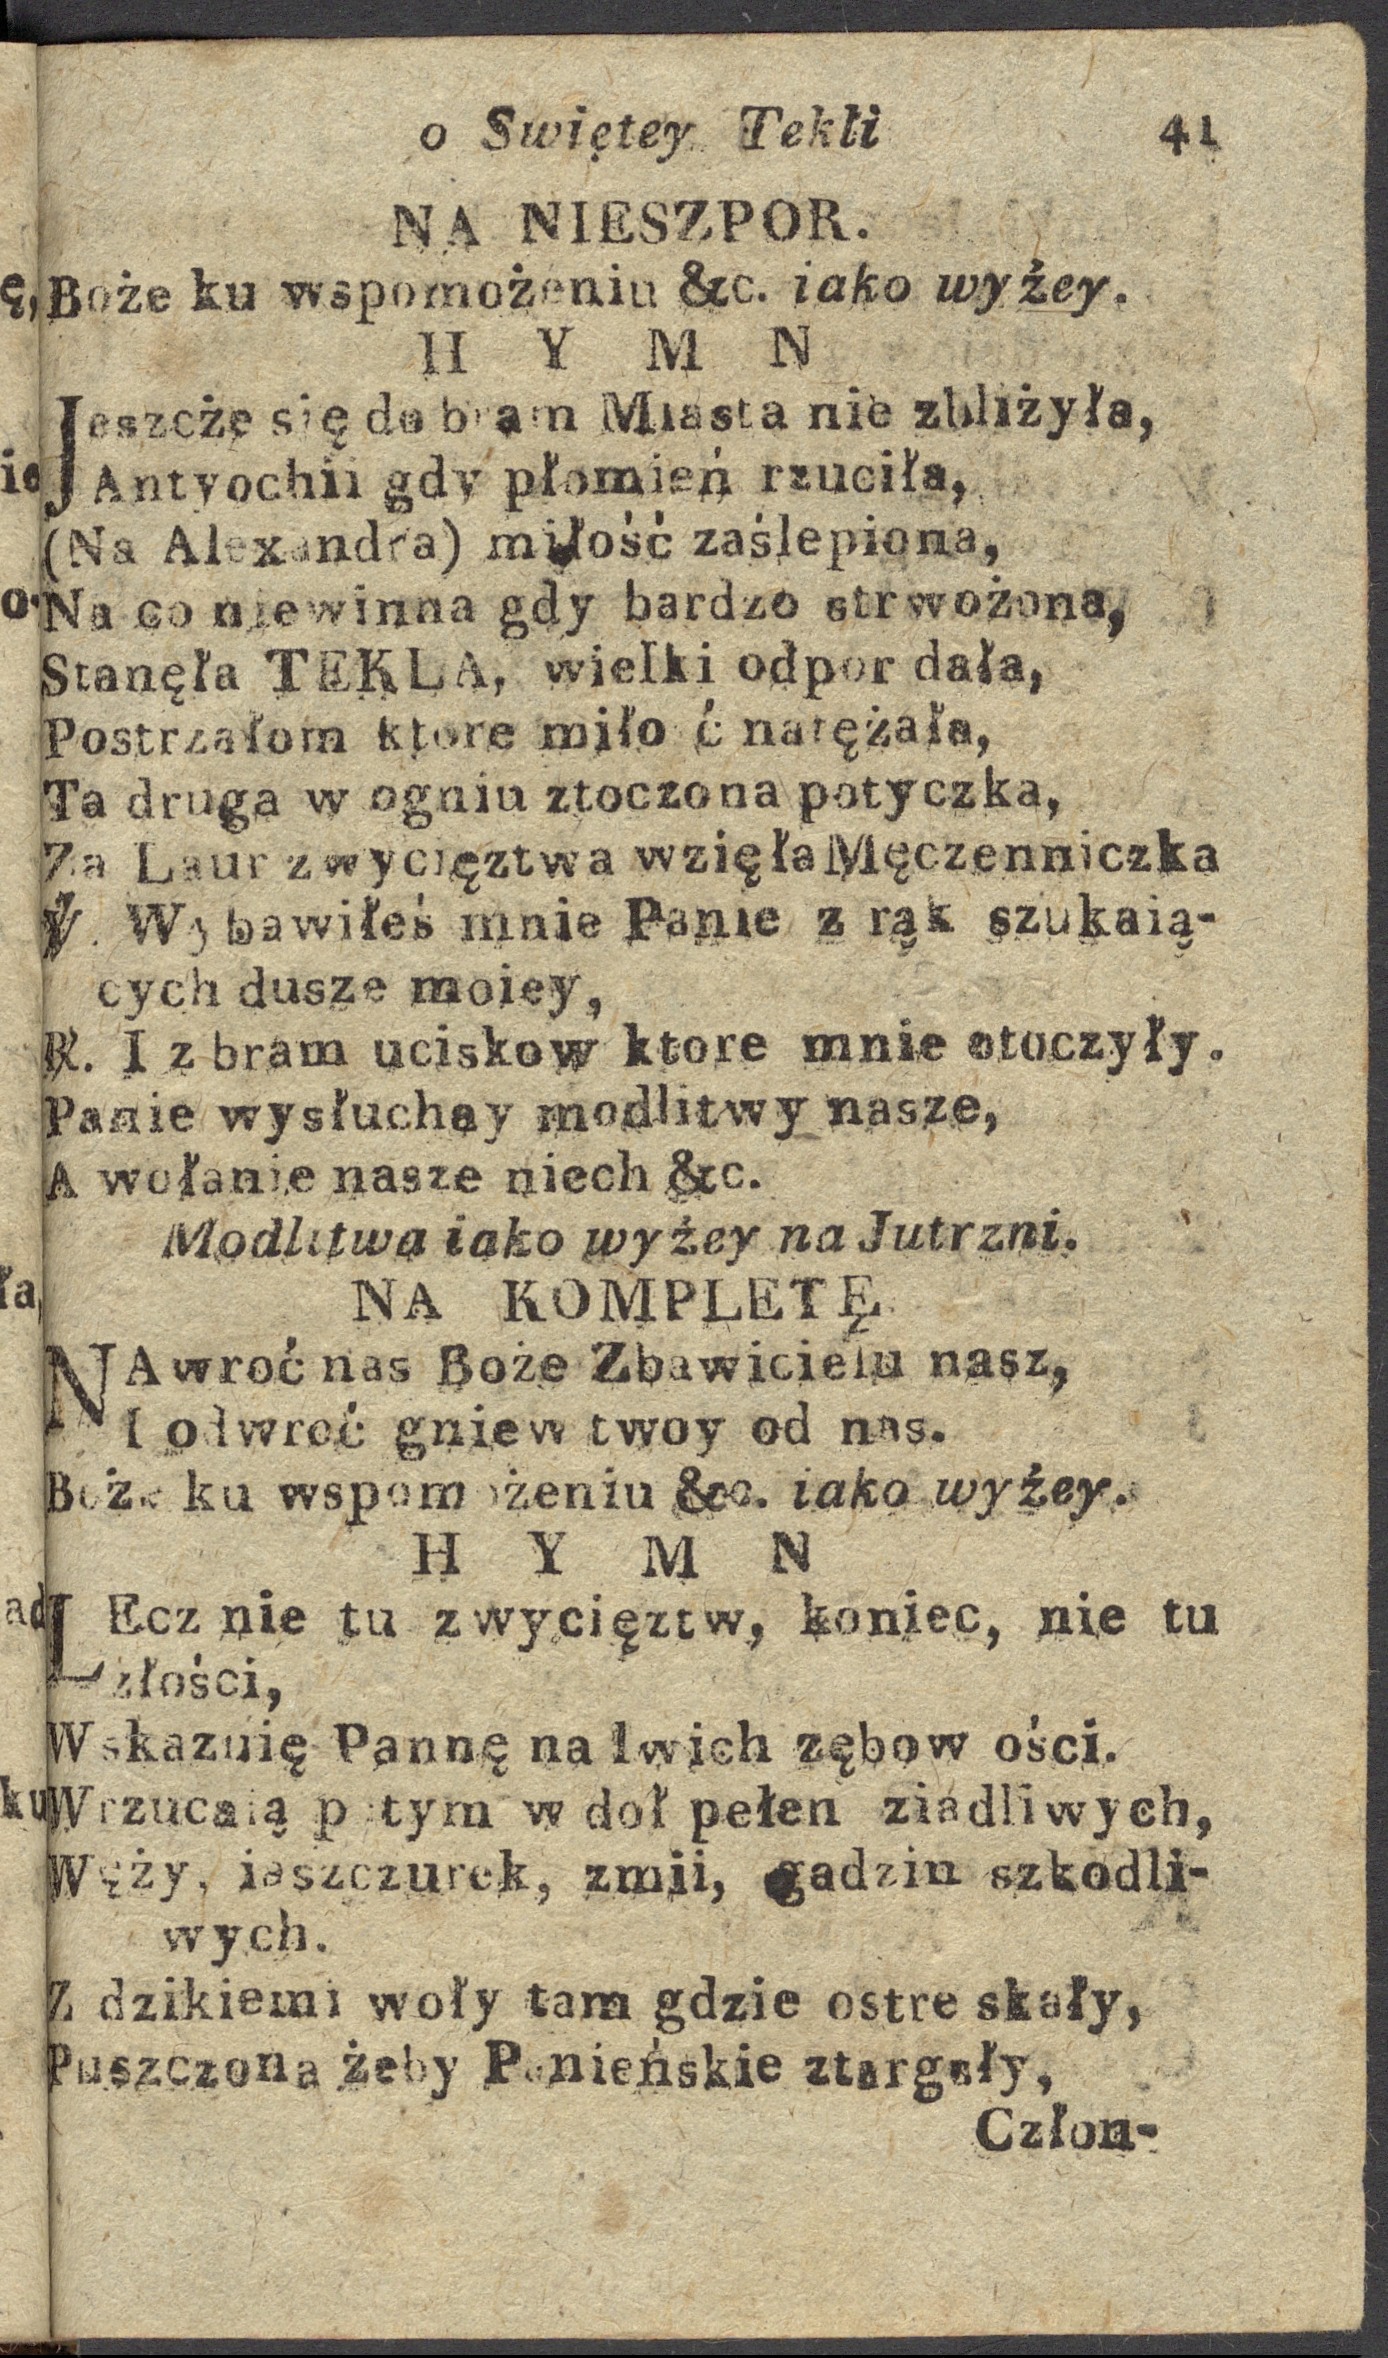 o Swiętey Tekli 41
NA NIESZPOR.
Boże ku wspomożeniu &c. iako wyżey.
H Y M N
Jeszcże się do bram Miasta nie zbliżyła,
Antyochii gdy płomień rzuciła,
(Na Alexandra) miłość zaślepiona,
Na co niewinna gdy bardzo strwożona,
Stanęła TEKLA, wielki odpor dała,
Postrzałom ktore miło ć natężała,
Ta druga w ogniu ztoczona potyczka,
Za Laur zwycięztwa wzięła Męczenniczka
℣. Wybawiłeś mnie Panie z rąk szukaią-
cych dusze moiey,
℟. I z bram uciskow ktore mnie otoczyły.
Panie wysłuchay modlitwy nasze,
A wołanie nasze niech &c.
Modlitwa iako wyżey na Jutrzni.
NA KOMPLETĘ
NAwroć nas Boże Zbawicielu nasz,
I odwroć gniew twoy od nas.
Boże ku wspomożeniu &c. iako wyżey.
H Y M N
LEcz nie tu zwycięztw, koniec, nie tu
złości,
Wskazuię Pannę na lwich zębow ości.
Wrzucaią potym w doł pełen ziadliwych,
Węży, iaszczurek, zmii, gadzin szkodli-
wych.
Z dzikiemi woły tam gdzie ostre skały,
Puszczona żeby Panieńskie ztargały,
Człon-